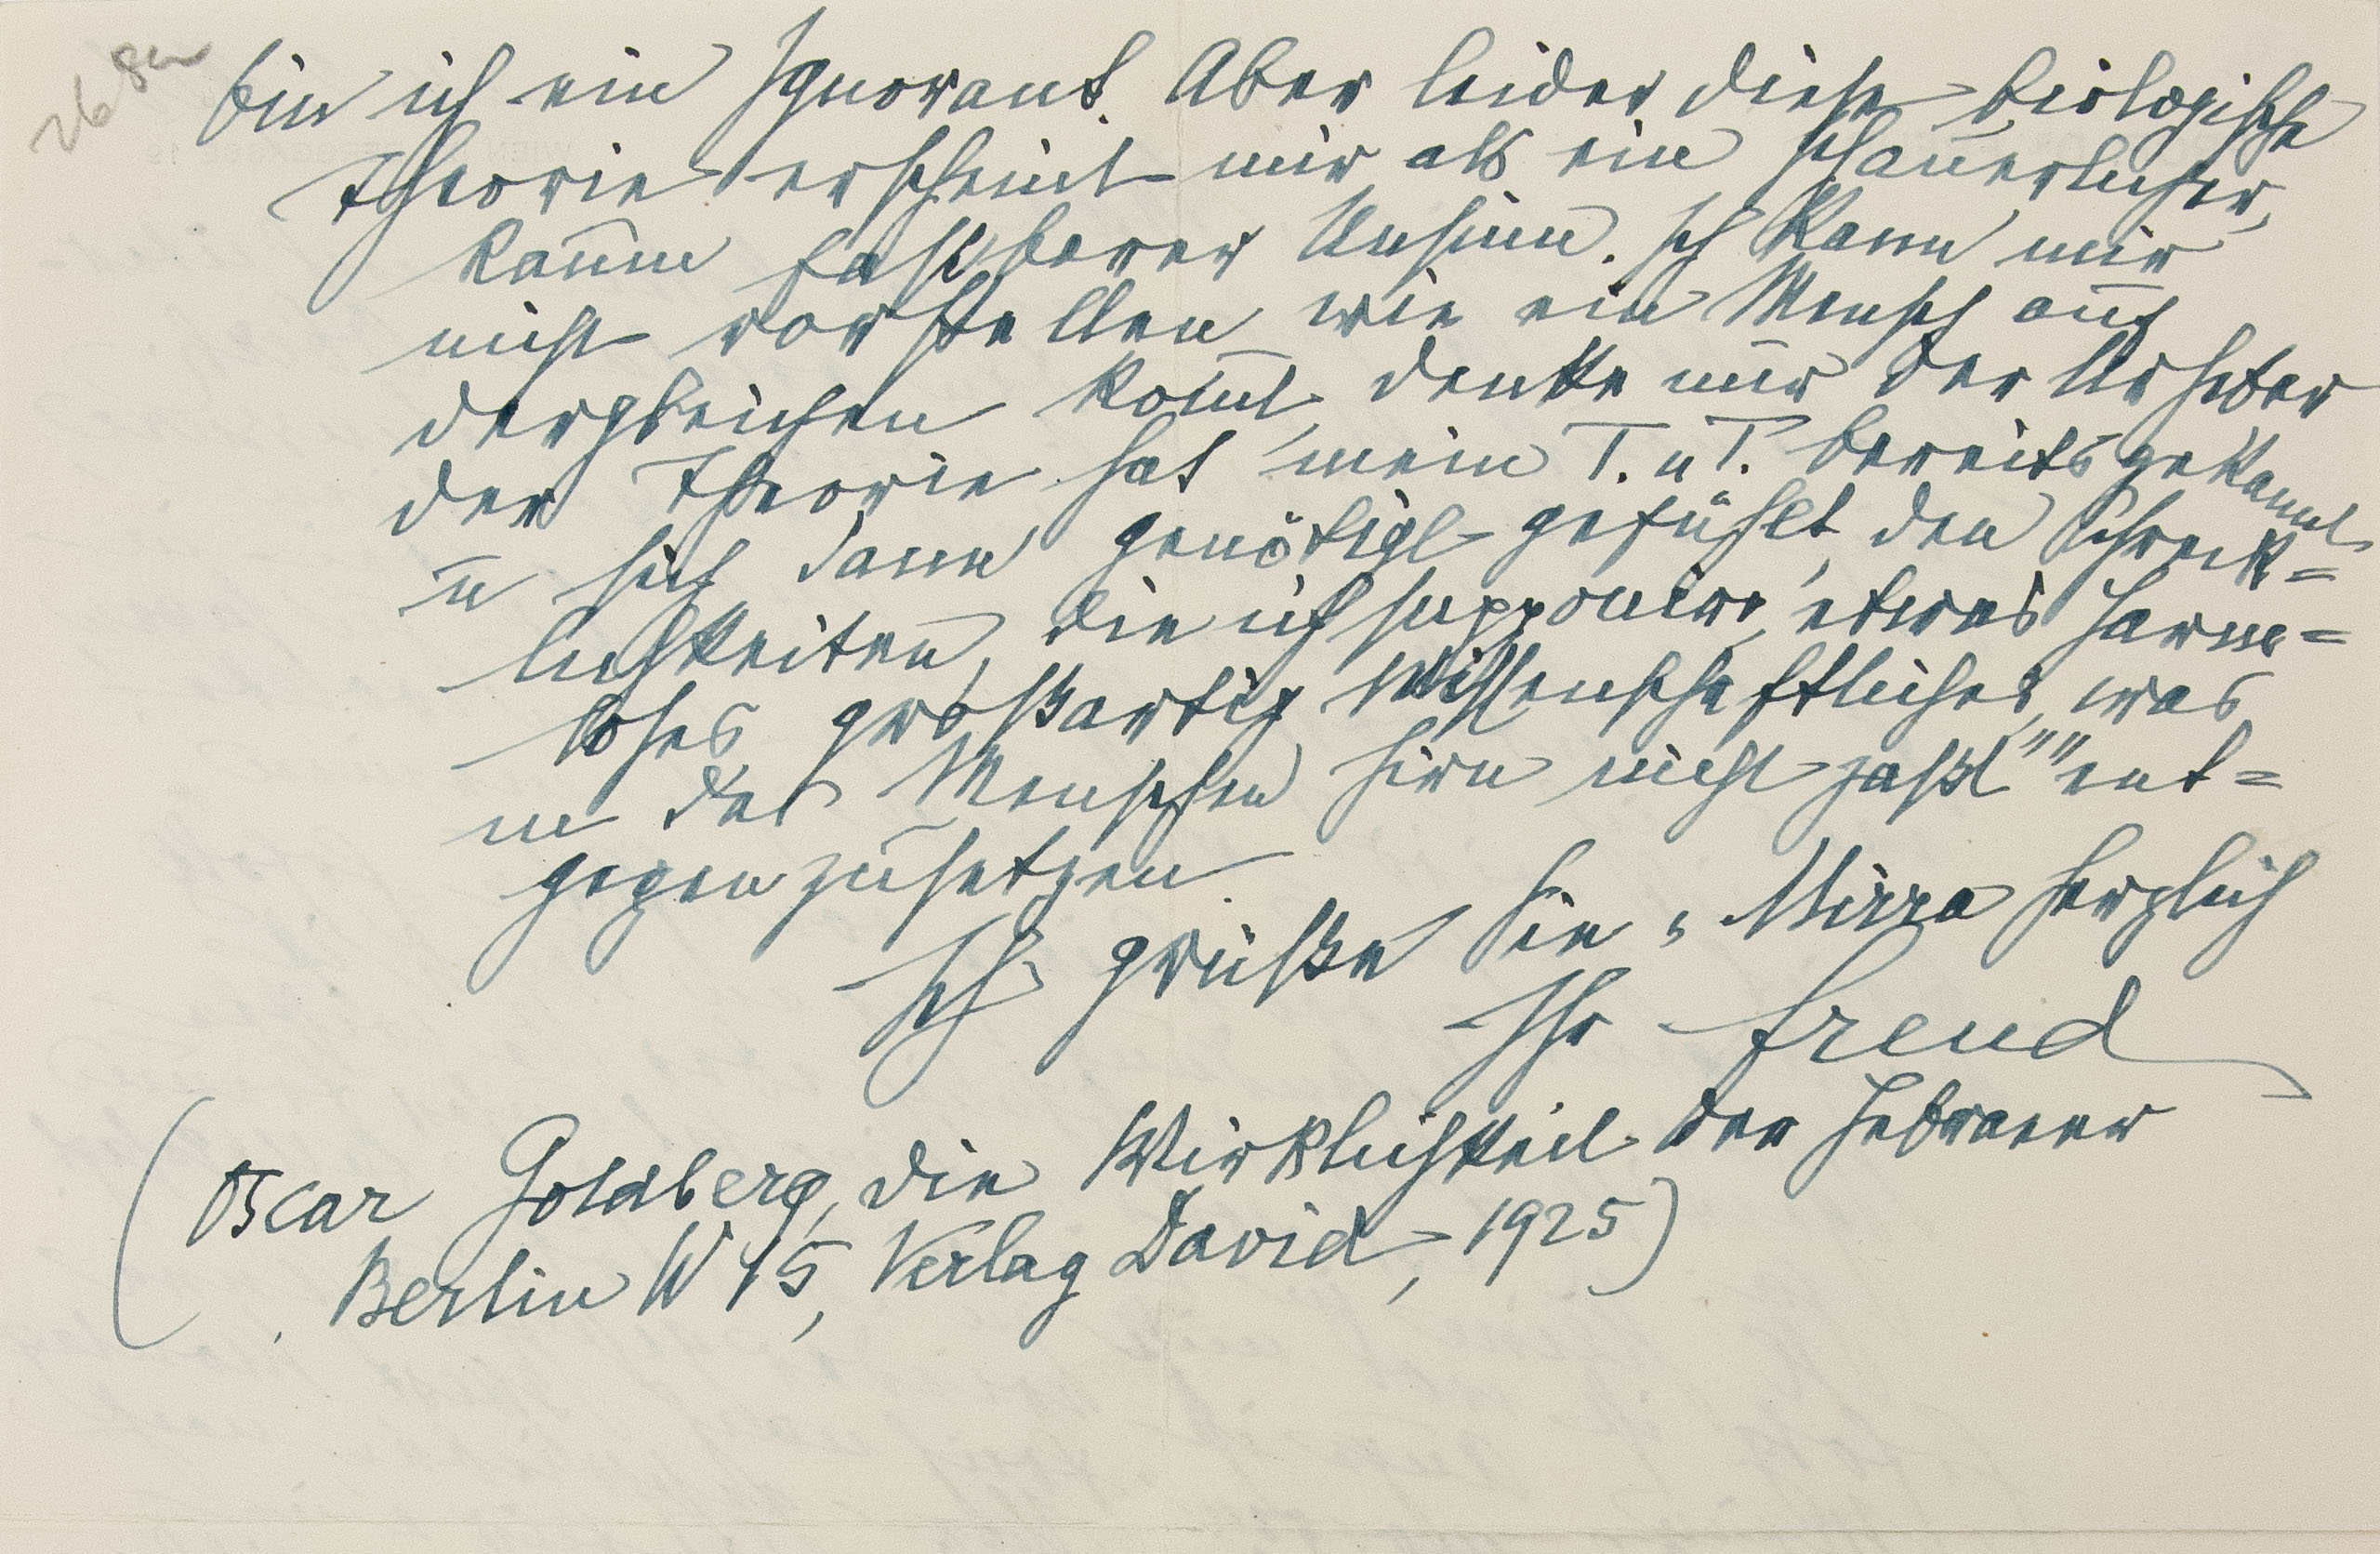 bin ich ein Ignorant. Aber leider diese biologische
Theorie erscheint mir als ein schauerlicher,
kaum fassbarer Unsinn. Ich kann mir
nicht vorstellen wie ein Mensch auf
dergleichen kom̄t, denke mir der Urheber
der Theorie hat mein T. u T. bereits gekannt
u sich dann genötigt gefühlt, den Schreck=
lichkeiten, die ich supponire, etwas Harm=
loses großartig Wissenschaftliches, was
in des Menschen Hirn nicht paßt"" ent=
gegenzusetzen
Ich grüße Sie u Mirra herzlich
Ihr Freud
(Oscar Goldberg, die Wirklichkeit der Hebraeer
Berlin W 15, Verlag David, 1925)